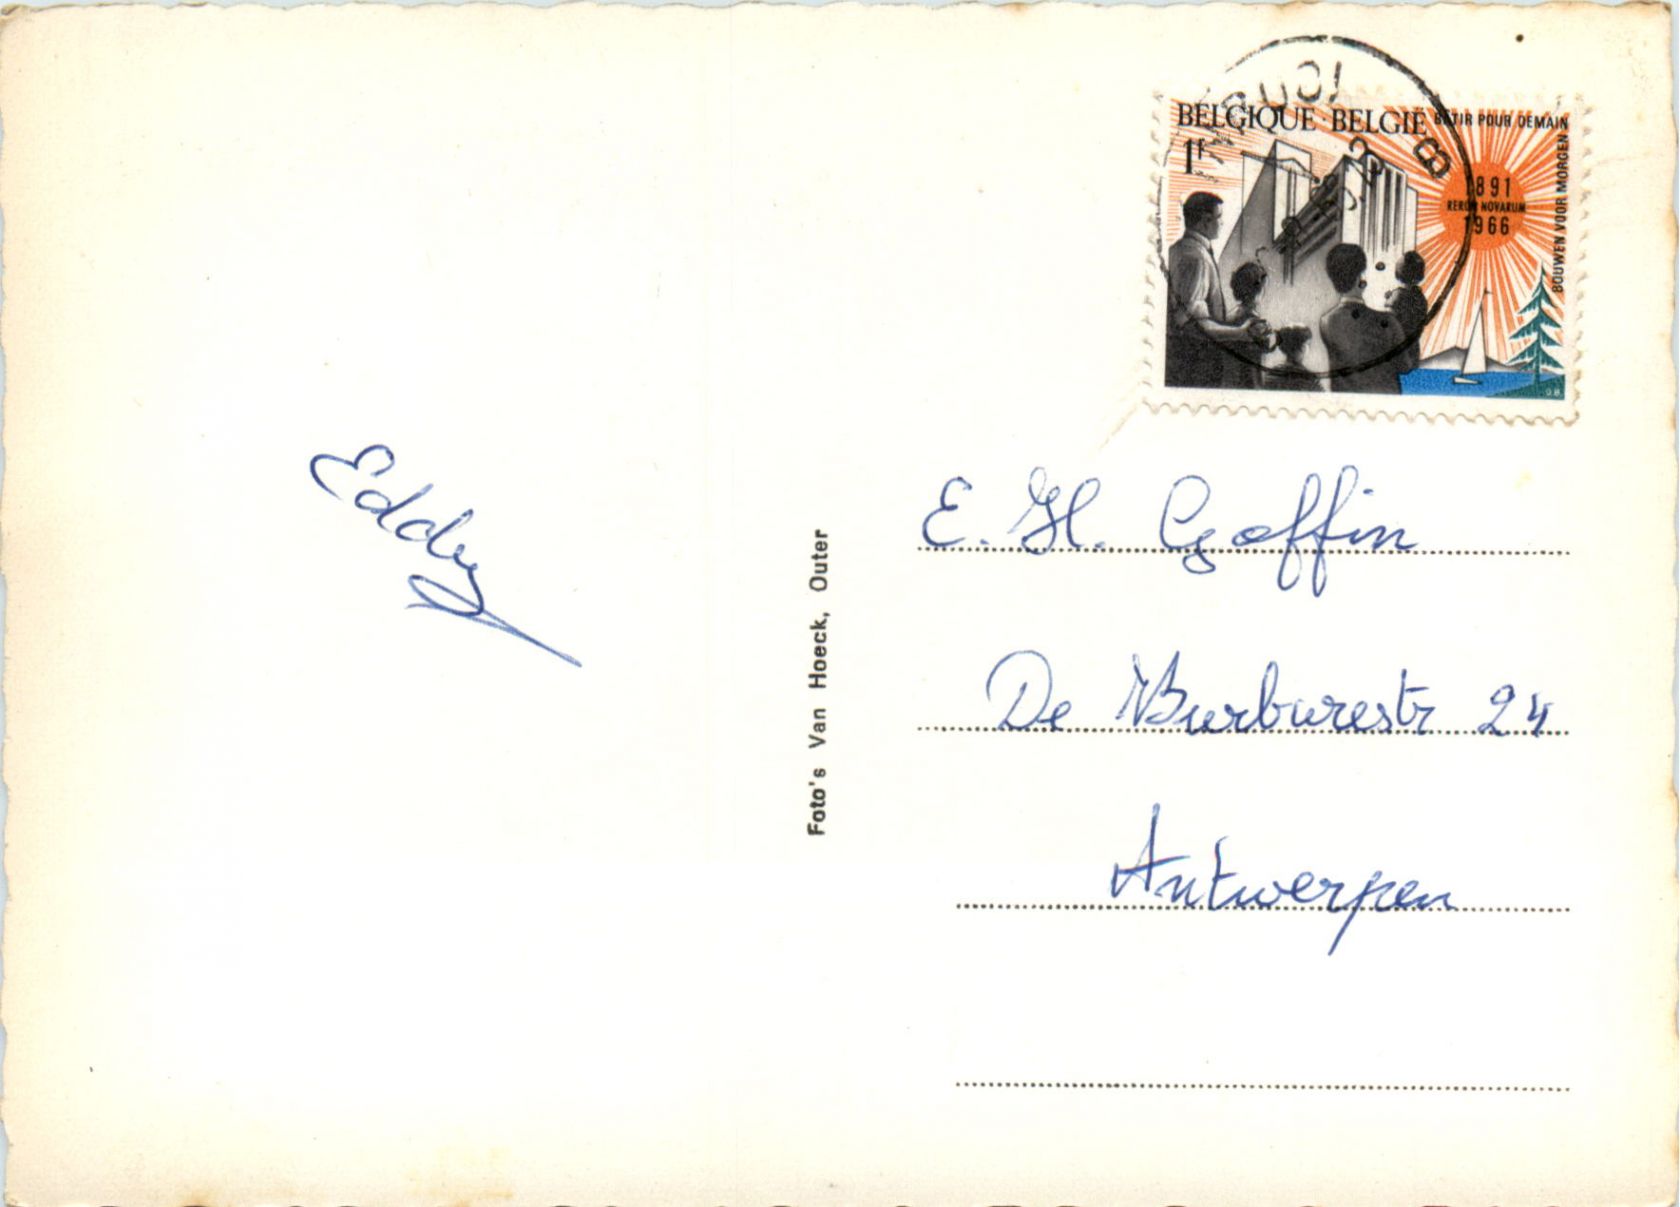 BELGIQUE·BELGIË
1F
BÂTIR POUR DEMAIN
BOUWEN VOOR MORGEN
1891
RERUM NOVARUM
1966
Eddy
Foto's Van Hoeck, Outer
E. H. Goffin
De Burburestr 24
Antwerpen